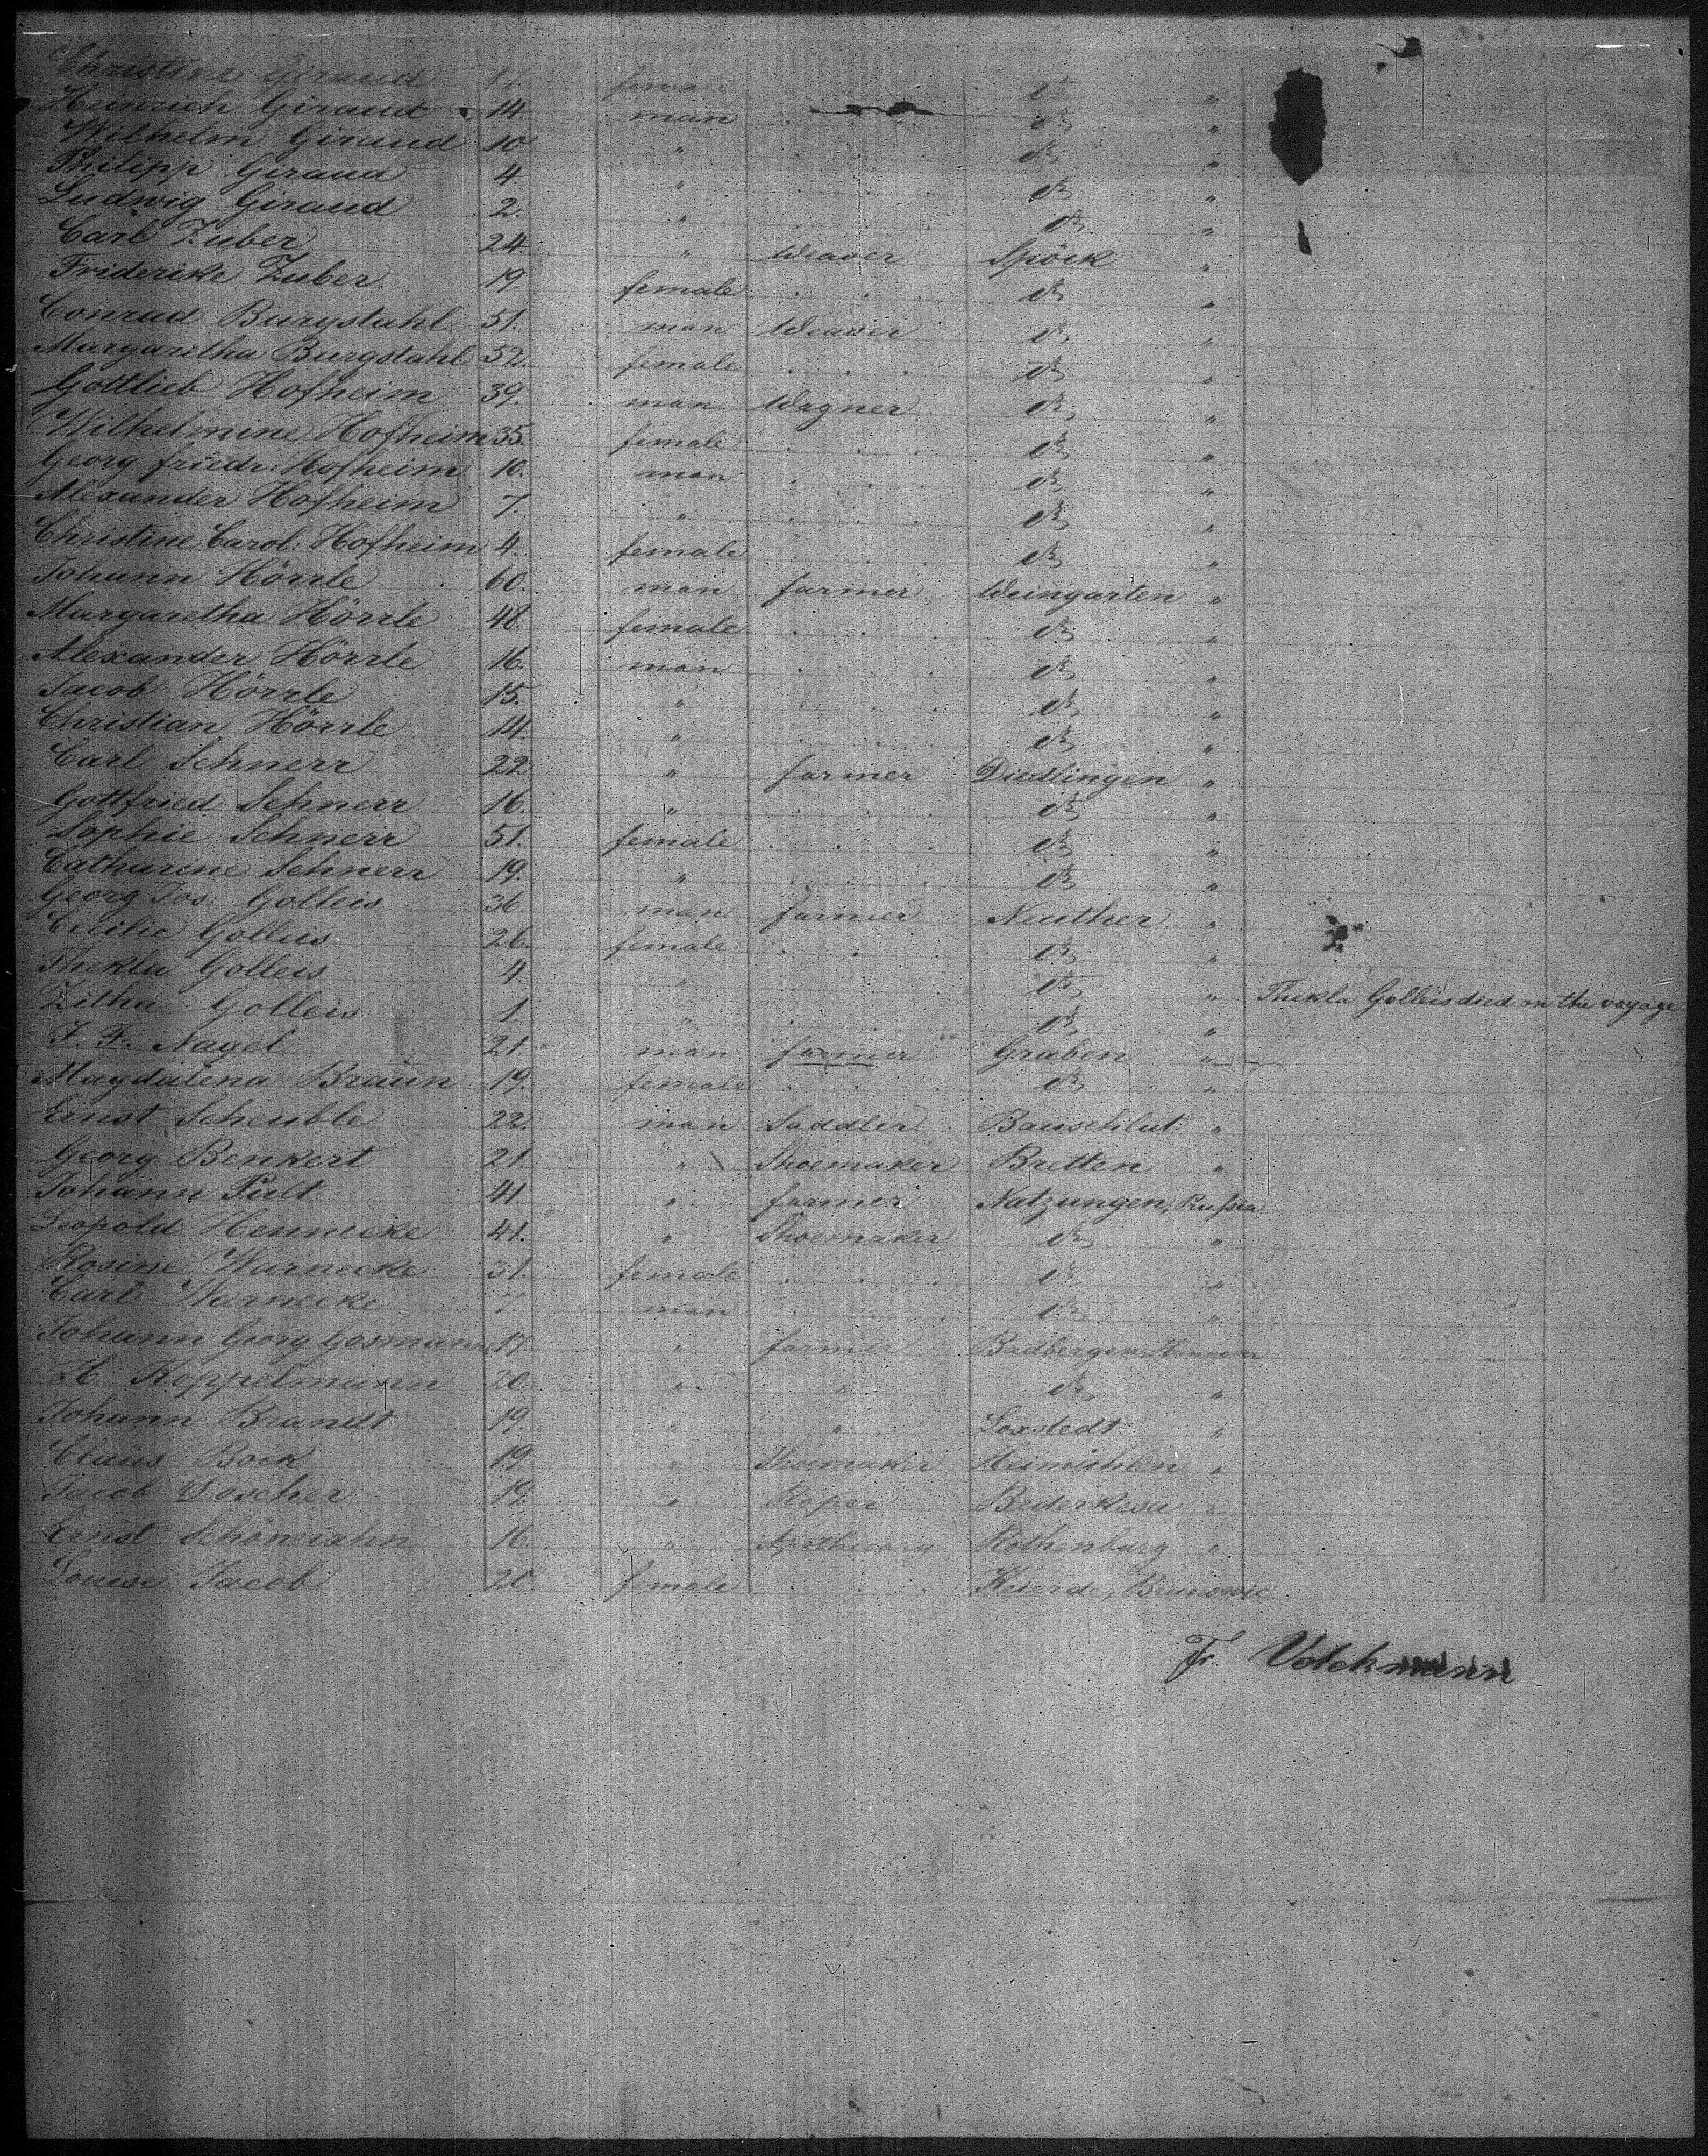 Christine Giraud female do "
Heinrich Giraud 14. man . . . do "
Wilhelm Giraud 10 " . . . do "
Philipp Giraud 4. " . . . do "
Ludwig Giraud 2. " . . . do "
Carl Zuber 24. " Weaver Spöck "
Friderike Zuber 19. female . . . do "
Conrad Burgstahl 51. man Weaver do "
Margaritha Burgstahl 52. female . . . do "
Gottlieb Hofheim 39. man Wagner do "
Wilhelmine Hofheim 35. female . . . do "
Georg friedr: Hofheim 10. man . . . do "
Alexander Hofheim 7. " . . . do "
Christine Carol: Hofheim 4. female . . . do "
Johann Hörrle 60. man farmer Weingarten "
Margaretha Hörrle 48. female . . . do "
Alexander Hörrle 16. man . . . do "
Jacob Hörrle 15. " . . . do "
Christian Hörrle 14. " . . . do "
Carl Schnerr 22. " farmer Diedlingen "
Gottfried Schnerr 16. " . . . do "
Sophie Schnerr 51. female . . . do "
Catharine Schnerr 19. " . . . do "
Georg Jos: Golleis 36. man farmer Neuther "
Cicilie Golleis 26. female . . . do "
Thekla Golleis 4. " . . . do " Thekla Golleis died on the voyage
Zitha Golleis 1. " . . . do "
J. F. Nagel 21. man farmer Graben "
Magdalena Braun 19. female . . . do "
Ernst Scheuble 22. man Saddler Bauschlut "
Georg Benkert 21. " Shoemaker Bretten "
Johann Pult 41. " farmer Natzungen, Prussia
Leopold Hennecke 41. " Shoemaker do "
Rosine Warnecke 31. female . . . do "
Carl Warnecke 7. man do "
Johann Georg Gosmann 17. " farmer Badbergen, Hannover
H. Koppelmann 20. " " do "
Johann Brandt 19. " " Loxstedt "
Claus Bock 19. " Shoemaker "
Jacob Doscher 19. " Roper Bederkesa "
Ernst Schönjahn 16. " Apothecary Rothenburg "
Louise Jacob 20. female . . . Brunswic
Fr. Volckmann